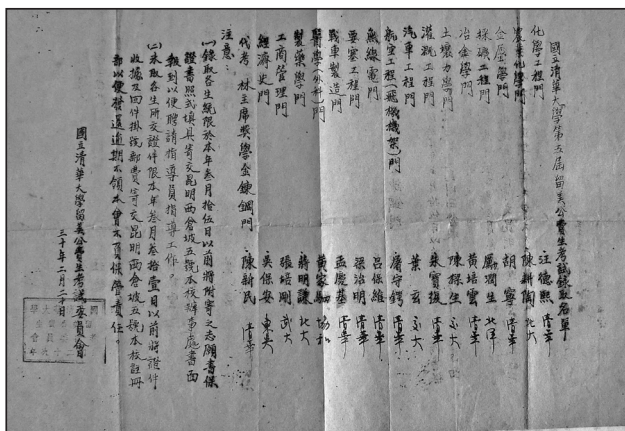 國立清華大學第五屆留美公費生考試錄取名單
化學工程門 汪德熙 清華
農業化學門 陳耕陶 北大
金屬學門 胡寧 清華
採礦工程門 勵潤生 北洋
冶金學門 黃培雲 清華
土壤力學門 陳樑生 交大
灌溉工程門 朱寶復 清華
汽車工程門 葉玄 交大
航空工程(飛機機架)門 屠守鍔 清華
無線電門 呂保維 清華
要塞工程門 梁治明 清華
戰車製造門 孟慶基 清華
醫學(外科)門 黃家駟 協和
製藥學門 蔣明謙 北大
工商管理門 張培剛 武大
經濟史門 吳保安 東吳
代考 林主席獎學金鍊鋼門 陳新民 清華
注意:
(一)錄取各生統限於本年叁月拾伍日以前將附寄之志願書保
證書照式填具寄交昆明西倉坡五號本校辦事處書面
報到以便聘請指導員指導工作。
(二)未取各生所交證件限本年叁月叁拾壹日以前將證件
收據及回件掛號郵費寄交昆明西倉坡五號本校註冊
部以便發還逾期不領本會不負保管責任。
國立清華大學留美公費生考試委員會
三十年二月二十日